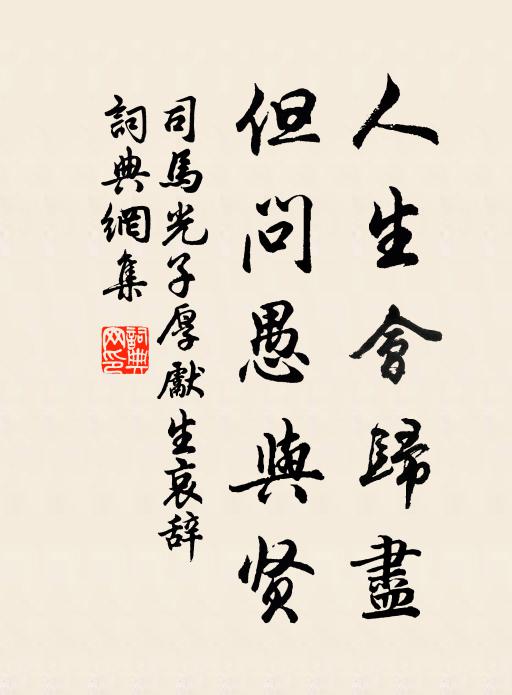 人生會歸盡
但問愚與贤
司馬光子厚獻生哀辞
詞典網集
詞典网印